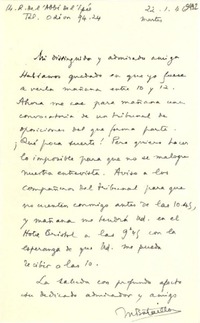 14. R. de l'Abbé de l'Epée
Tél. Odéon 94-24
22-1-
Martes
Mi distinguida y admirada amiga
Habíamos quedado en que yo fuese
a verla mañana entre 10 y 12.
Ahora me cae para mañana una
convocatoria de un tribunal de
oposiciones del que forma parte.
¡Qué poca suerte! Pero quiero hacer
lo imposible para que no se malogre
nuestra entrevista. Aviso a los
compañeros del tribunal para que
no cuenten conmigo antes de las 10.45,
y mañana me tendrá Ud. en el
Hotel Bristol a las 9 45 con la
esperanza de que Ud. me pueda
recibir a las 10.
La saluda con profundo afecto
su dedicado admirador y amigo
M Bataillon